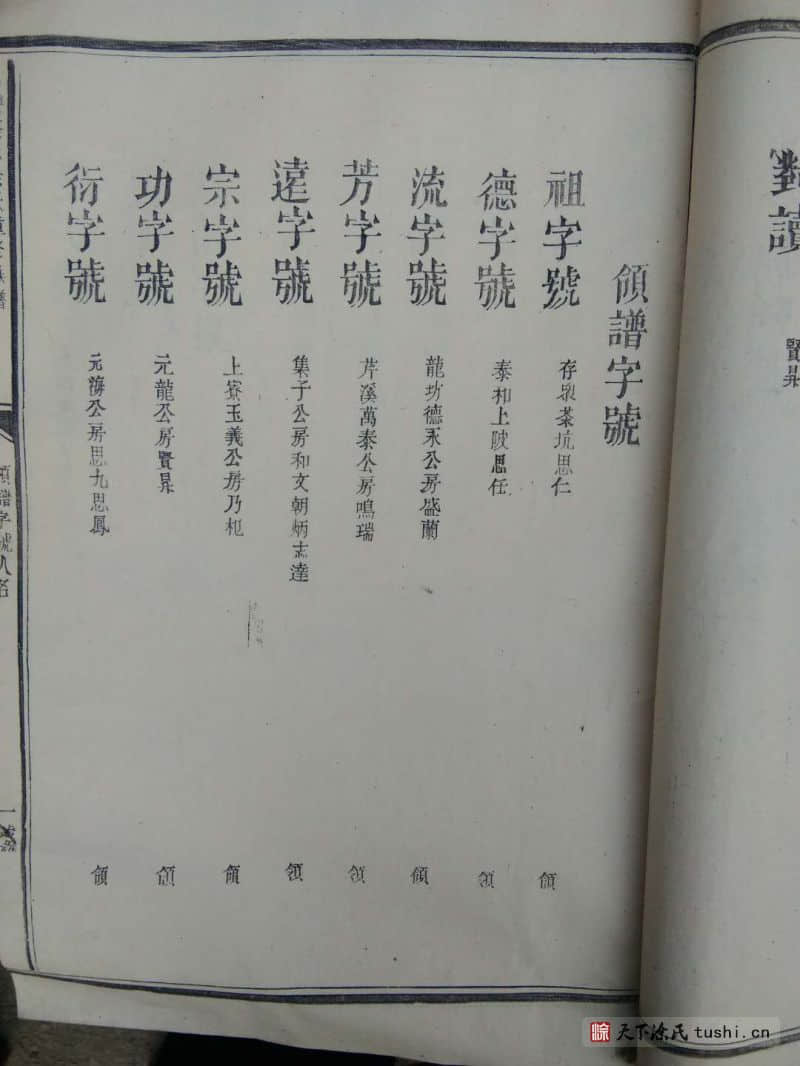 對讀
賢昇
領譜字號
祖字號 存衆茶坑思仁 領
德字號 泰和上陂思任 領
流字號 龍坊德禾公房盛蘭 領
芳字號 芹溪萬泰公房鳴瑞 領
遠字號 集子公房和文朝炳志達 領
宗字號 上寮玉義公房乃杞 領
功字號 元龍公房賢昇 領
衍字號 元海公房思九思鳳 領
領譜字號人名
一
天下涂氏 tushi.cn